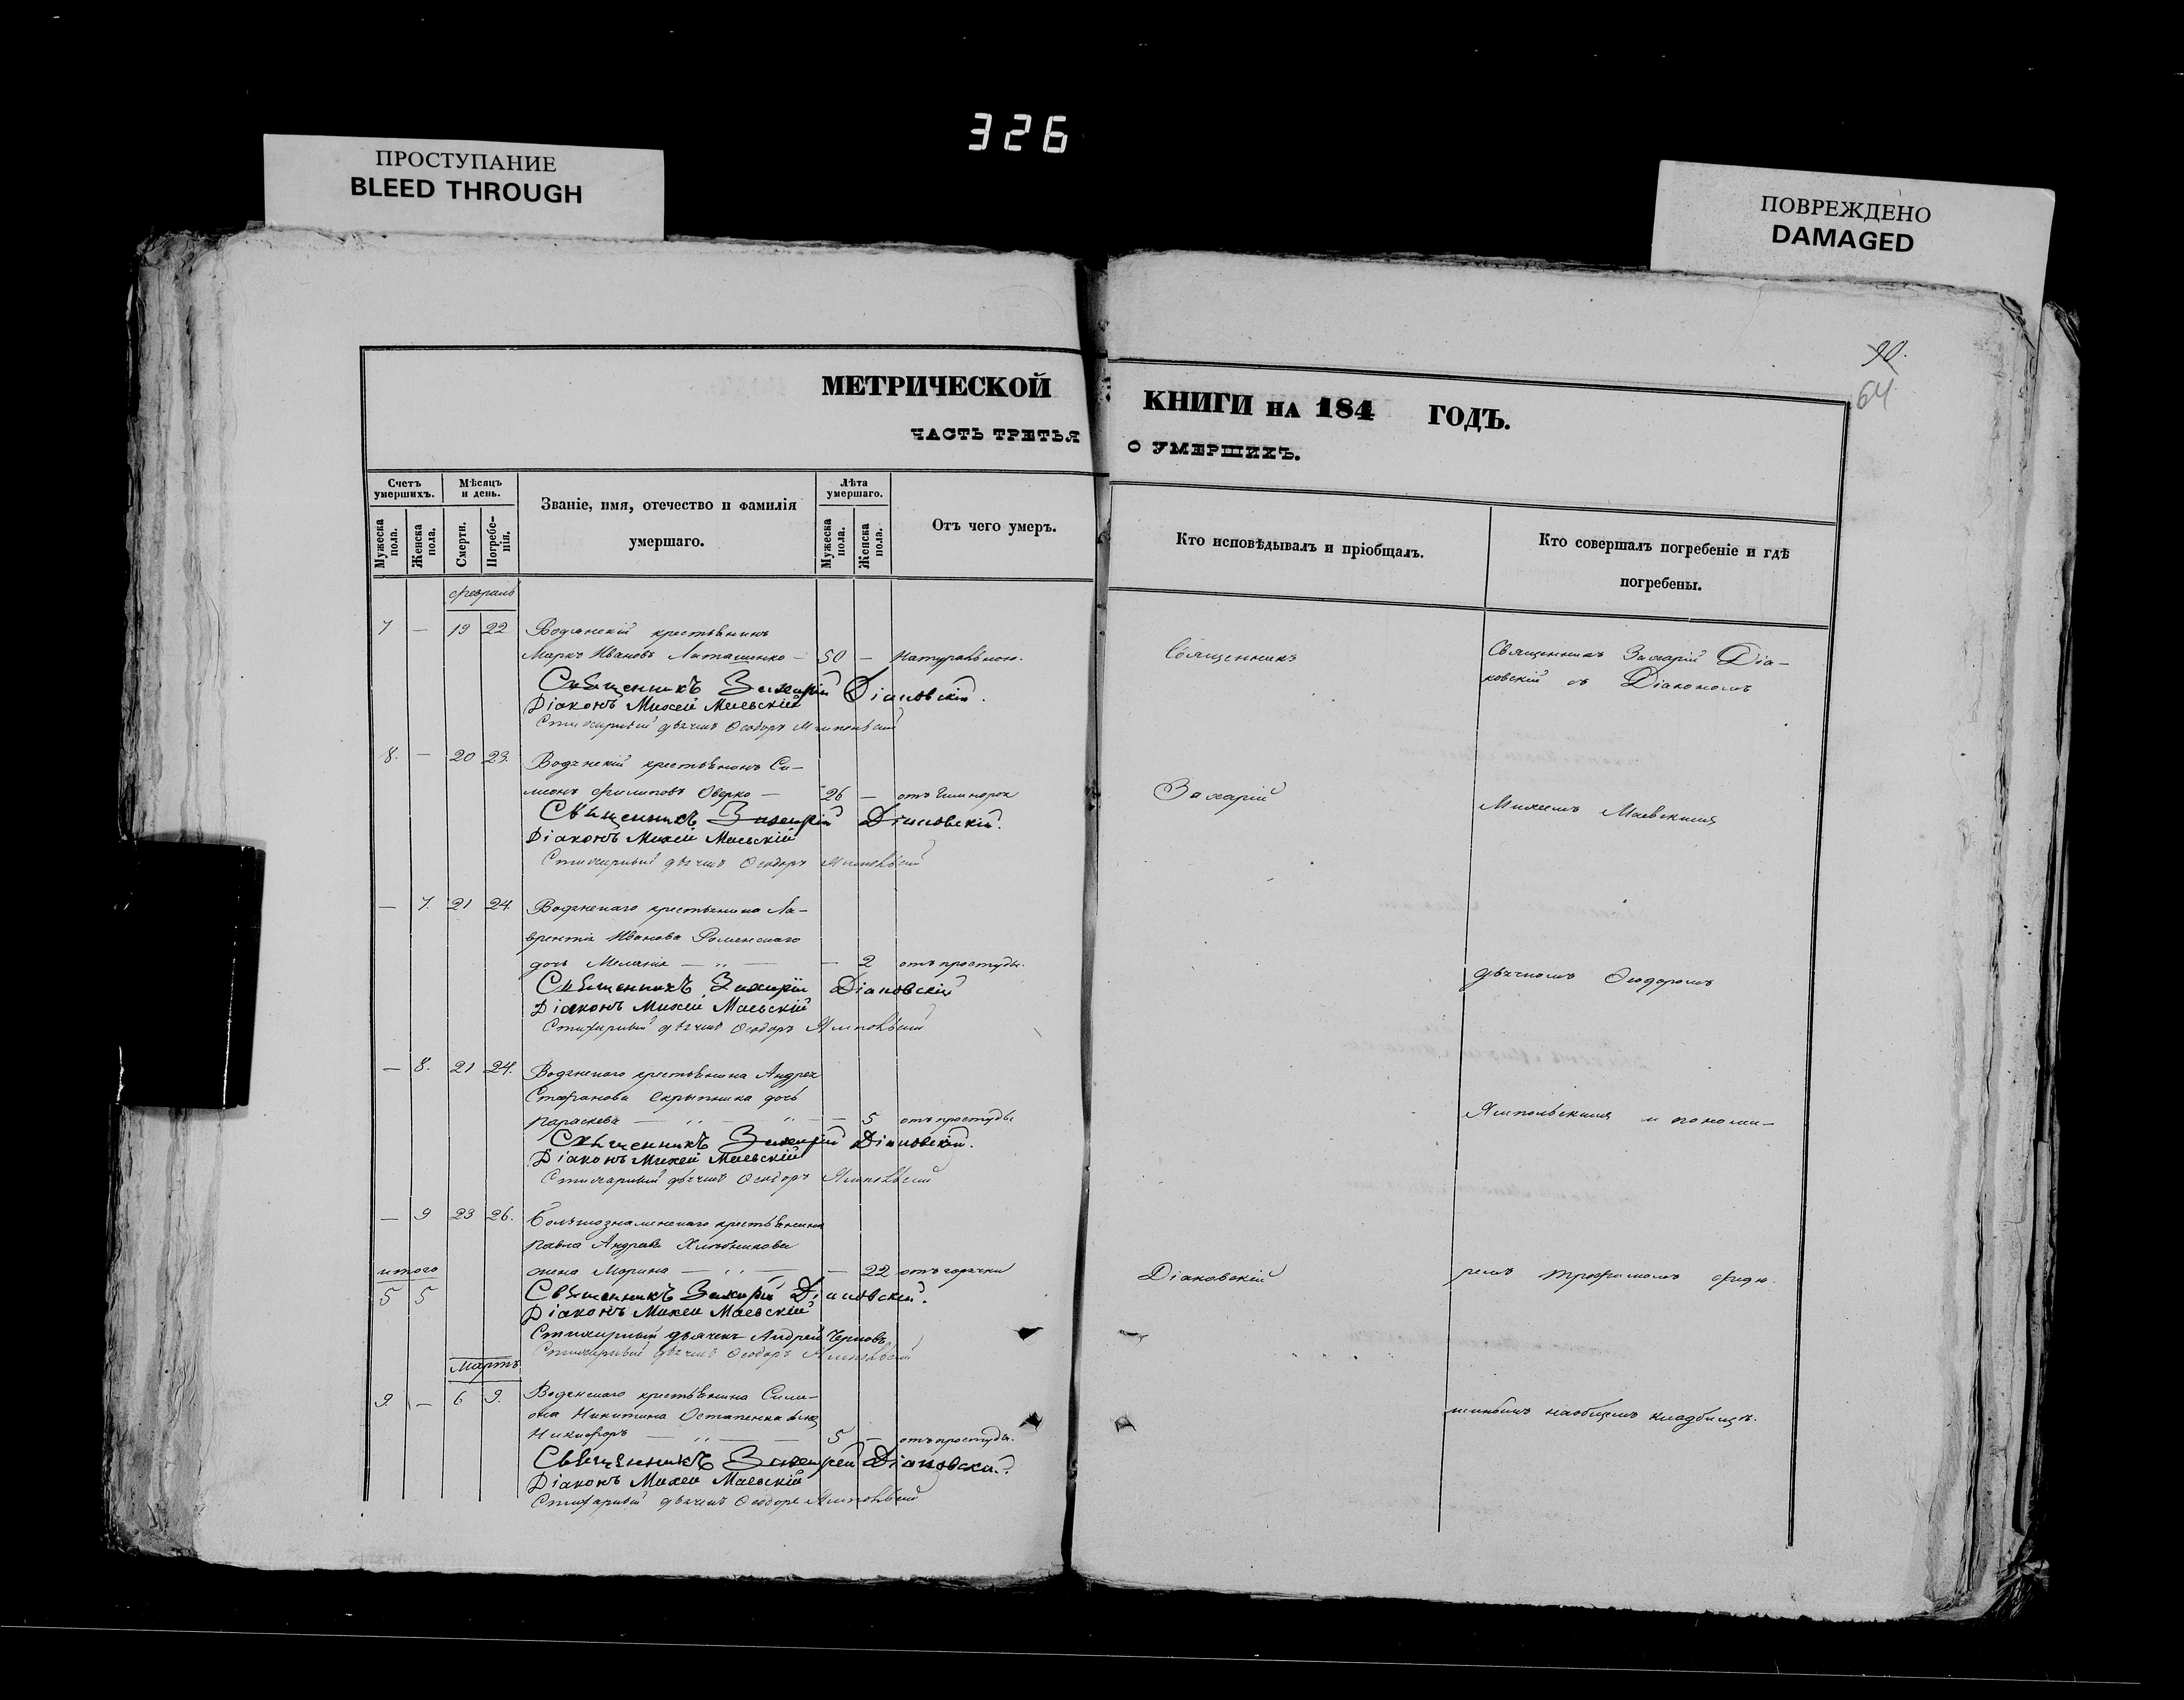 326
ПРОСТУПАНИЕ
BLEED THROUGH
ПОВРЕЖДЕНО
DAMAGED
90.
64
МЕТРИЧЕСКОЙ КНИГИ НА 184 ГОДЪ.
ЧАСТЬ ТРЕТЬЯ О УМЕРШИХЪ.
Счетъ умершихъ.
Мужеска пола.
Женска пола.
Мѣсяцъ и день.
Смерти.
Погребенія.
Званіе, имя, отечество и фамилія
умершаго.
Лѣта умершаго.
Мужеска пола.
Женска пола.
Отъ чего умеръ.
Кто исповѣдывалъ и пріобщалъ.
Кто совершалъ погребеніе и гдѣ
погребены.
февраль
7 — 19 22 Водянскій крестьянинъ
Маркъ Ивановъ — 50 — Натуральною.
Священникъ Захарій Діаковскій.
Діаконъ Михей Маевскій
Стихарный дьячекъ Ѳеодоръ Ямпольскій
8. — 20 23. Водянскій крестьянинъ Си-
меонъ Филиповъ Оверко — 26 — отъ
Священникъ Захарій Діаковскій.
Діаконъ Михей Маевскій
Стихарный дьячекъ Ѳеодоръ Ямпольскій
— 7. 21 24. Водянскаго крестьянина Ла-
врентія Иванова Роменскаго
дочь Меланія — „ — — 2 отъ простуды.
Священникъ Захарій Діаковскій
Діаконъ Михей Маевскій
Стихарный дьячекъ Ѳеодоръ Ямпольскій
— 8. 21 24. Водянскаго крестьянина Андрея
Стефанова Скрыпника дочь
Параскева — „ — „ — — 5 отъ простуды
Священникъ Захарій Діаковскій.
Діаконъ Михей Маевскій
Стихарный дьячекъ Ѳеодоръ Ямпольскій
— 9 23 26. Большознаменскаго крестьянина
Павла Андреева Хлѣбникова
итого жена Марина — „ — — 22 отъ горячки
5 5 Священникъ Захарій Діаковскій.
Діаконъ Михей Маевскій
Стихарный дьячекъ Андрей Черновъ
Стихарный дьячекъ Ѳеодоръ Ямпольскій
мартъ
9. — 6 9. Водянскаго крестьянина Симе-
она Никитина Остапенка сынъ
Никифоръ — „ — — 5 — отъ простуды.
Священникъ Захарій Діаковскій.
Діаконъ Михей Маевскій
Стихарный дьячекъ Ѳеодоръ Ямпольскій
Священникъ
Захарій
Діаковскій
Священникъ Захарій Діа-
ковскій съ Діакономъ
Михеемъ Маевскимъ
дьячкомъ Ѳеодоромъ
Ямпольскимъ и понома-
ремъ Трофимомъ
на общемъ кладбищѣ.